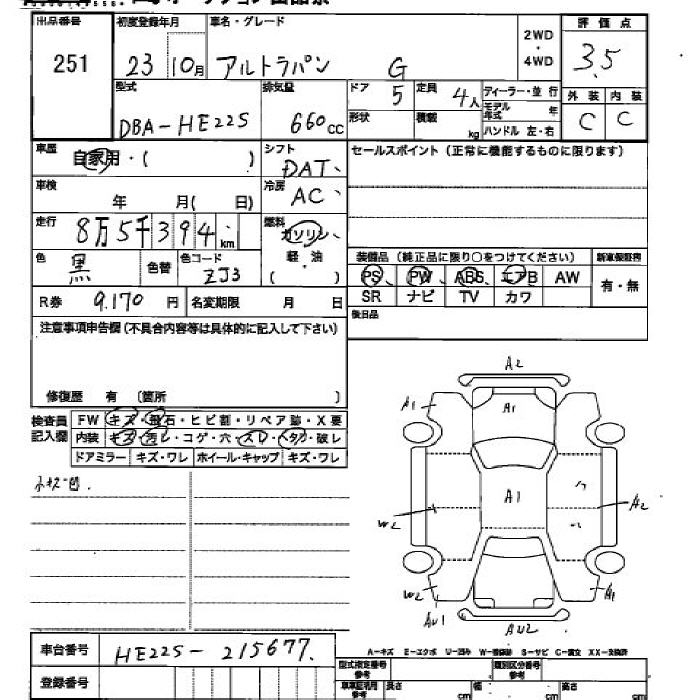 出品番号 初度登録年月 車名・グレード 2WD・4WD 評価点
251 23 10月 アルトラパン G 3.5
型式 排気量 ドア 定員 ディーラー・並行 外装 内装
DBA-HE22S 660cc 5 4人 モデル年式 年 C C
形状 積載 kg ハンドル 左・右
車歴 自家用・( ) シフト DAT、 セールスポイント(正常に機能するものに限ります)
車検 年 月( 日) 冷房 AC、
走行 8万5千394km 燃料 ガソリン・軽・油 ( )
色 黒 色替 色コード ZJ3 装備品(純正品に限り○をつけてください) 新車保証書
PS、PW、ABS、エアB AW 有・無
R券 9,170円 名変期限 月 日 SR ナビ TV カワ
注意事項申告欄(不具合内容等は具体的に記入して下さい) 後日品
修復歴 有 〔箇所 〕
検査員記入欄 FW キズ・飛石・ヒビ割・リペア跡・X要
内装 キズ・汚レ・コゲ・穴・スレ・ヘタリ・破レ
ドアミラー キズ・ワレ ホイール・キャップ キズ・ワレ
小キズ凹.
A2
A1 A1
A1
W2 A2
W2 A1
AU1 AU2
車台番号 HE22S-215677.
A-キズ E-エクボ U-凹み W-補修跡 S-サビ C-腐食 XX-交換済
登録番号 型式指定番号 参考 類別区分番号 参考
長さ cm 幅 cm 高さ cm